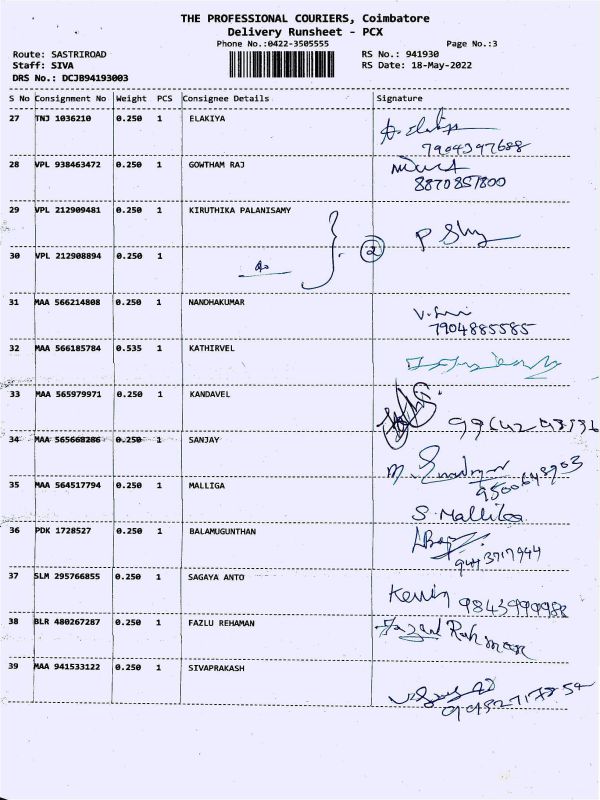 THE PROFESSIONAL COURIERS, Coimbatore
Delivery Runsheet - PCX
Phone No.:0422-3505555 Page No.:3
Route: SASTRIROAD RS No.: 941930
Staff: SIVA RS Date: 18-May-2022
DRS No.: DCJB94193003
S No Consignment No Weight PCS Consignee Details Signature
27 TNJ 1036210 0.250 1 ELAKIYA
7904397688
28 VPL 938463472 0.250 1 GOWTHAM RAJ
8870851800
29 VPL 212909481 0.250 1 KIRUTHIKA PALANISAMY
2
30 VPL 212908894 0.250 1
31 MAA 566214808 0.250 1 NANDHAKUMAR
7904885585
32 MAA 566185784 0.535 1 KATHIRVEL
33 MAA 565979971 0.250 1 KANDAVEL
34 MAA 565668286 0.250 1 SANJAY
9500648903
35 MAA 564517794 0.250 1 MALLIGA
S. Malliga
36 PDK 1728527 0.250 1 BALAMUGUNTHAN
37 SLM 295766855 0.250 1 SAGAYA ANTO
Kevin
38 BLR 480267287 0.250 1 FAZLU REHAMAN
Fazul Rahman
39 MAA 941533122 0.250 1 SIVAPRAKASH